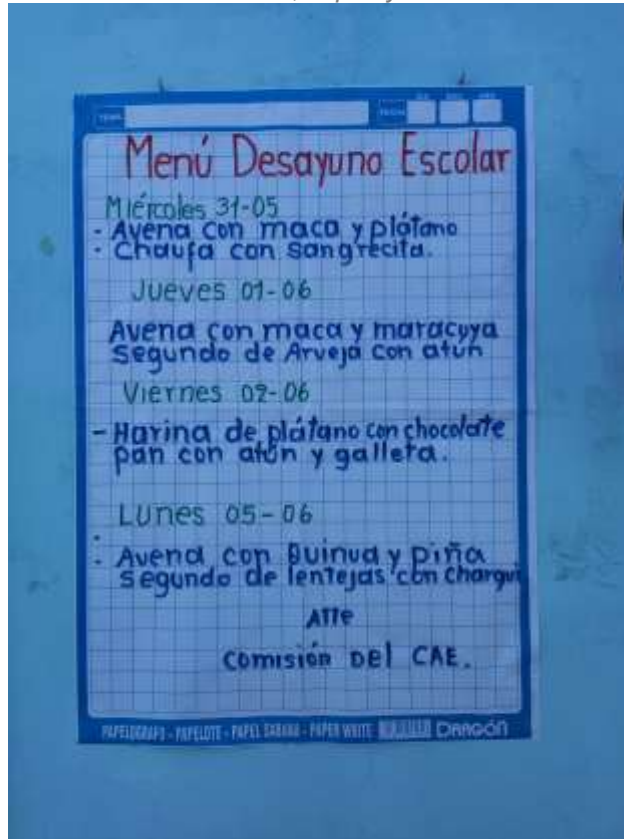 Menú Desayuno Escolar
Miércoles 31-05
- Avena con maca y plátano
- Chaufa con sangrecita.
Jueves 01-06
Avena con maca y maracuya
Segundo de Arveja con atún
Viernes 02-06
- Harina de plátano con chocolate
pan con atún y galleta.
Lunes 05-06
- Avena con Quinua y piña
Segundo de lentejas con Charqui
Atte
Comisión Del CAE.
PAPELOGRAFO - PAPELOTE - PAPEL SABANA - PAPER WHITE DRAGÓN